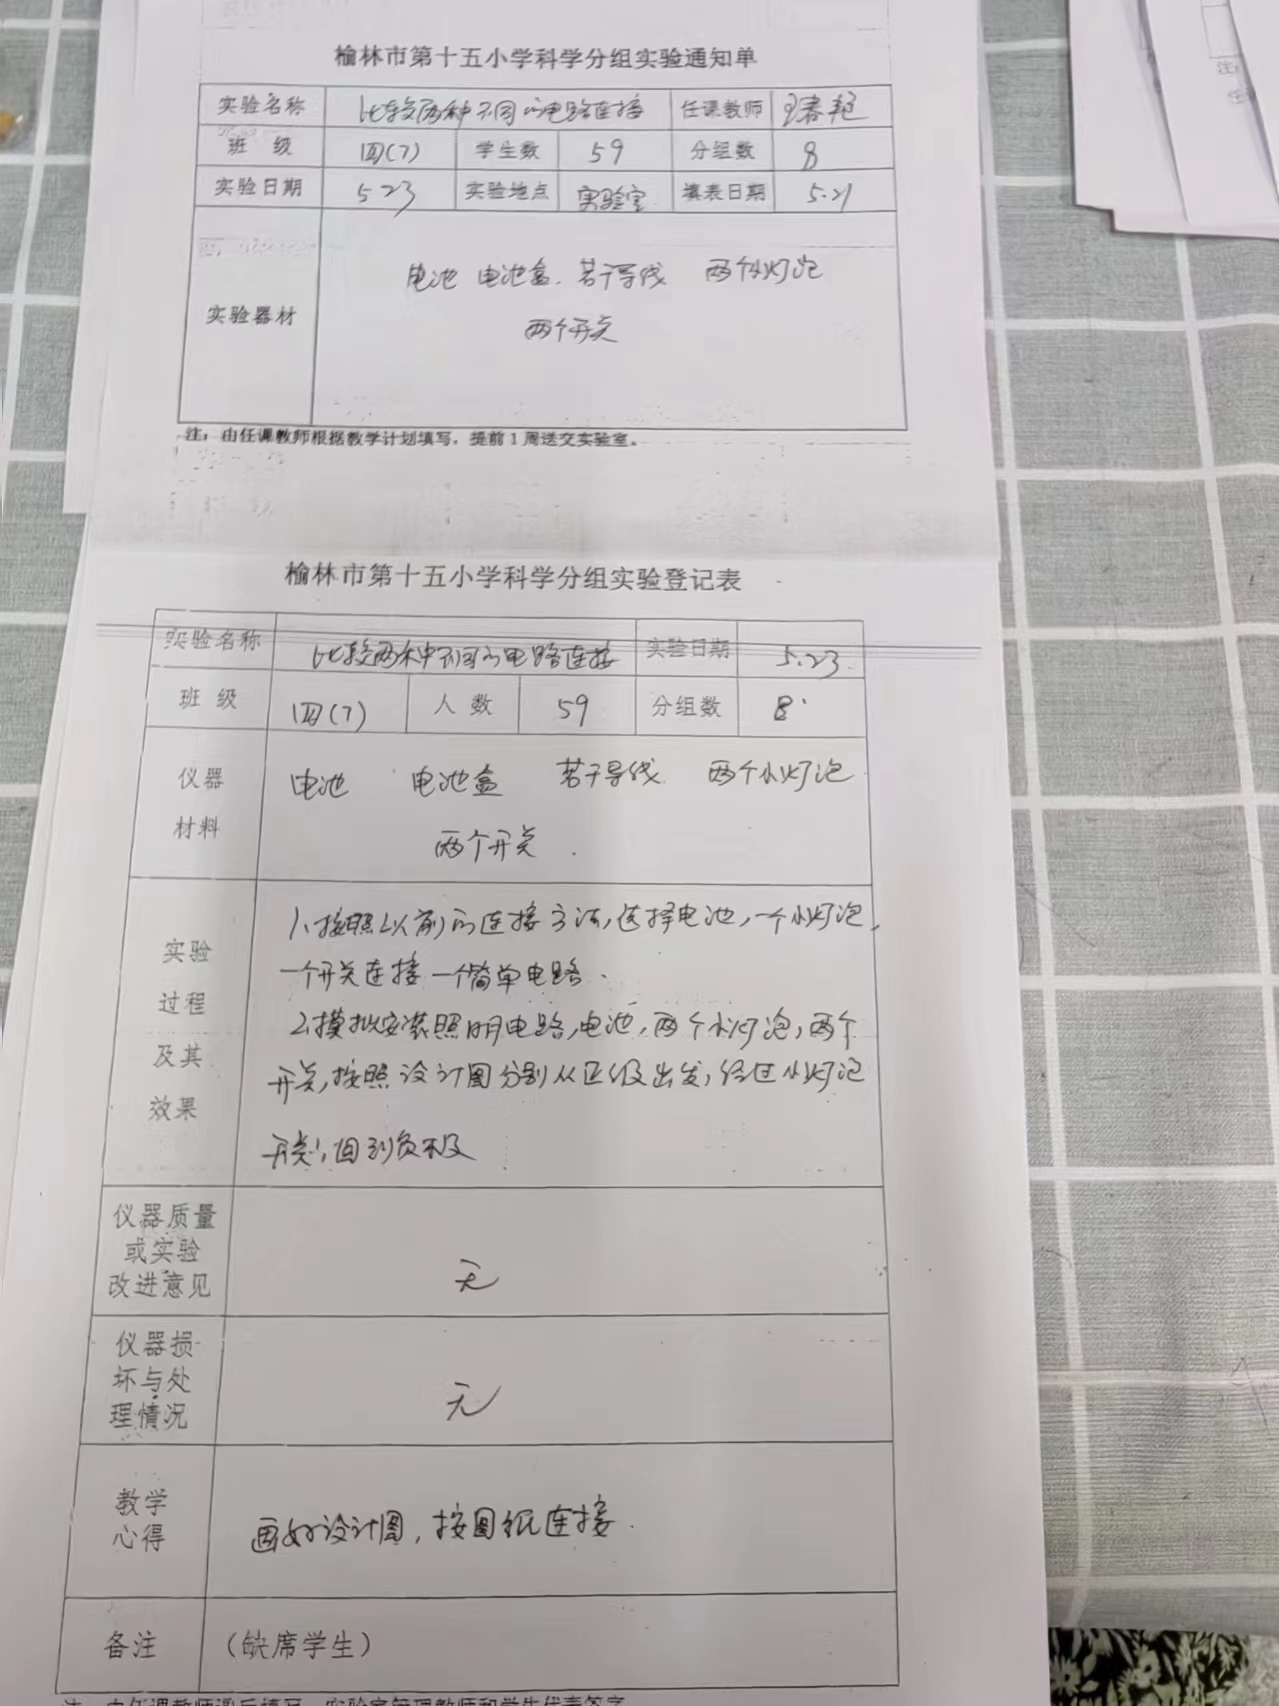 榆林市第十五小学科学分组实验通知单
实验名称 比较两种不同的电路连接 任课教师
班 级 四(7) 学生数 59 分组数 8
实验日期 5.23 实验地点 实验室 填表日期 5.21
电池 电池盒 若干导线 两个小灯泡
实验器材
两个开关
注：由任课教师根据教学计划填写，提前1周送交实验室。
榆林市第十五小学科学分组实验登记表
实验名称 比较两种不同的电路连接 实验日期 5.23
班 级 四(7) 人 数 59 分组数 8
仪器 电池 电池盒 若干导线 两个小灯泡
材料 两个开关
1、按照以前的连接方法,选择电池,一个小灯泡,
实验 一个开关连接一个简单电路.
过程 2、模拟安装照明电路,电池,两个小灯泡,两个
及其 开关,按照设计图分别从正极出发,经过小灯泡
效果 开关,回到负极
仪器质量
或实验
改进意见 无
仪器损
坏与处
理情况 无
教学
心得 画好设计图,按图纸连接.
备注 (缺席学生)